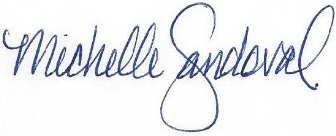 Michelle Sandoval